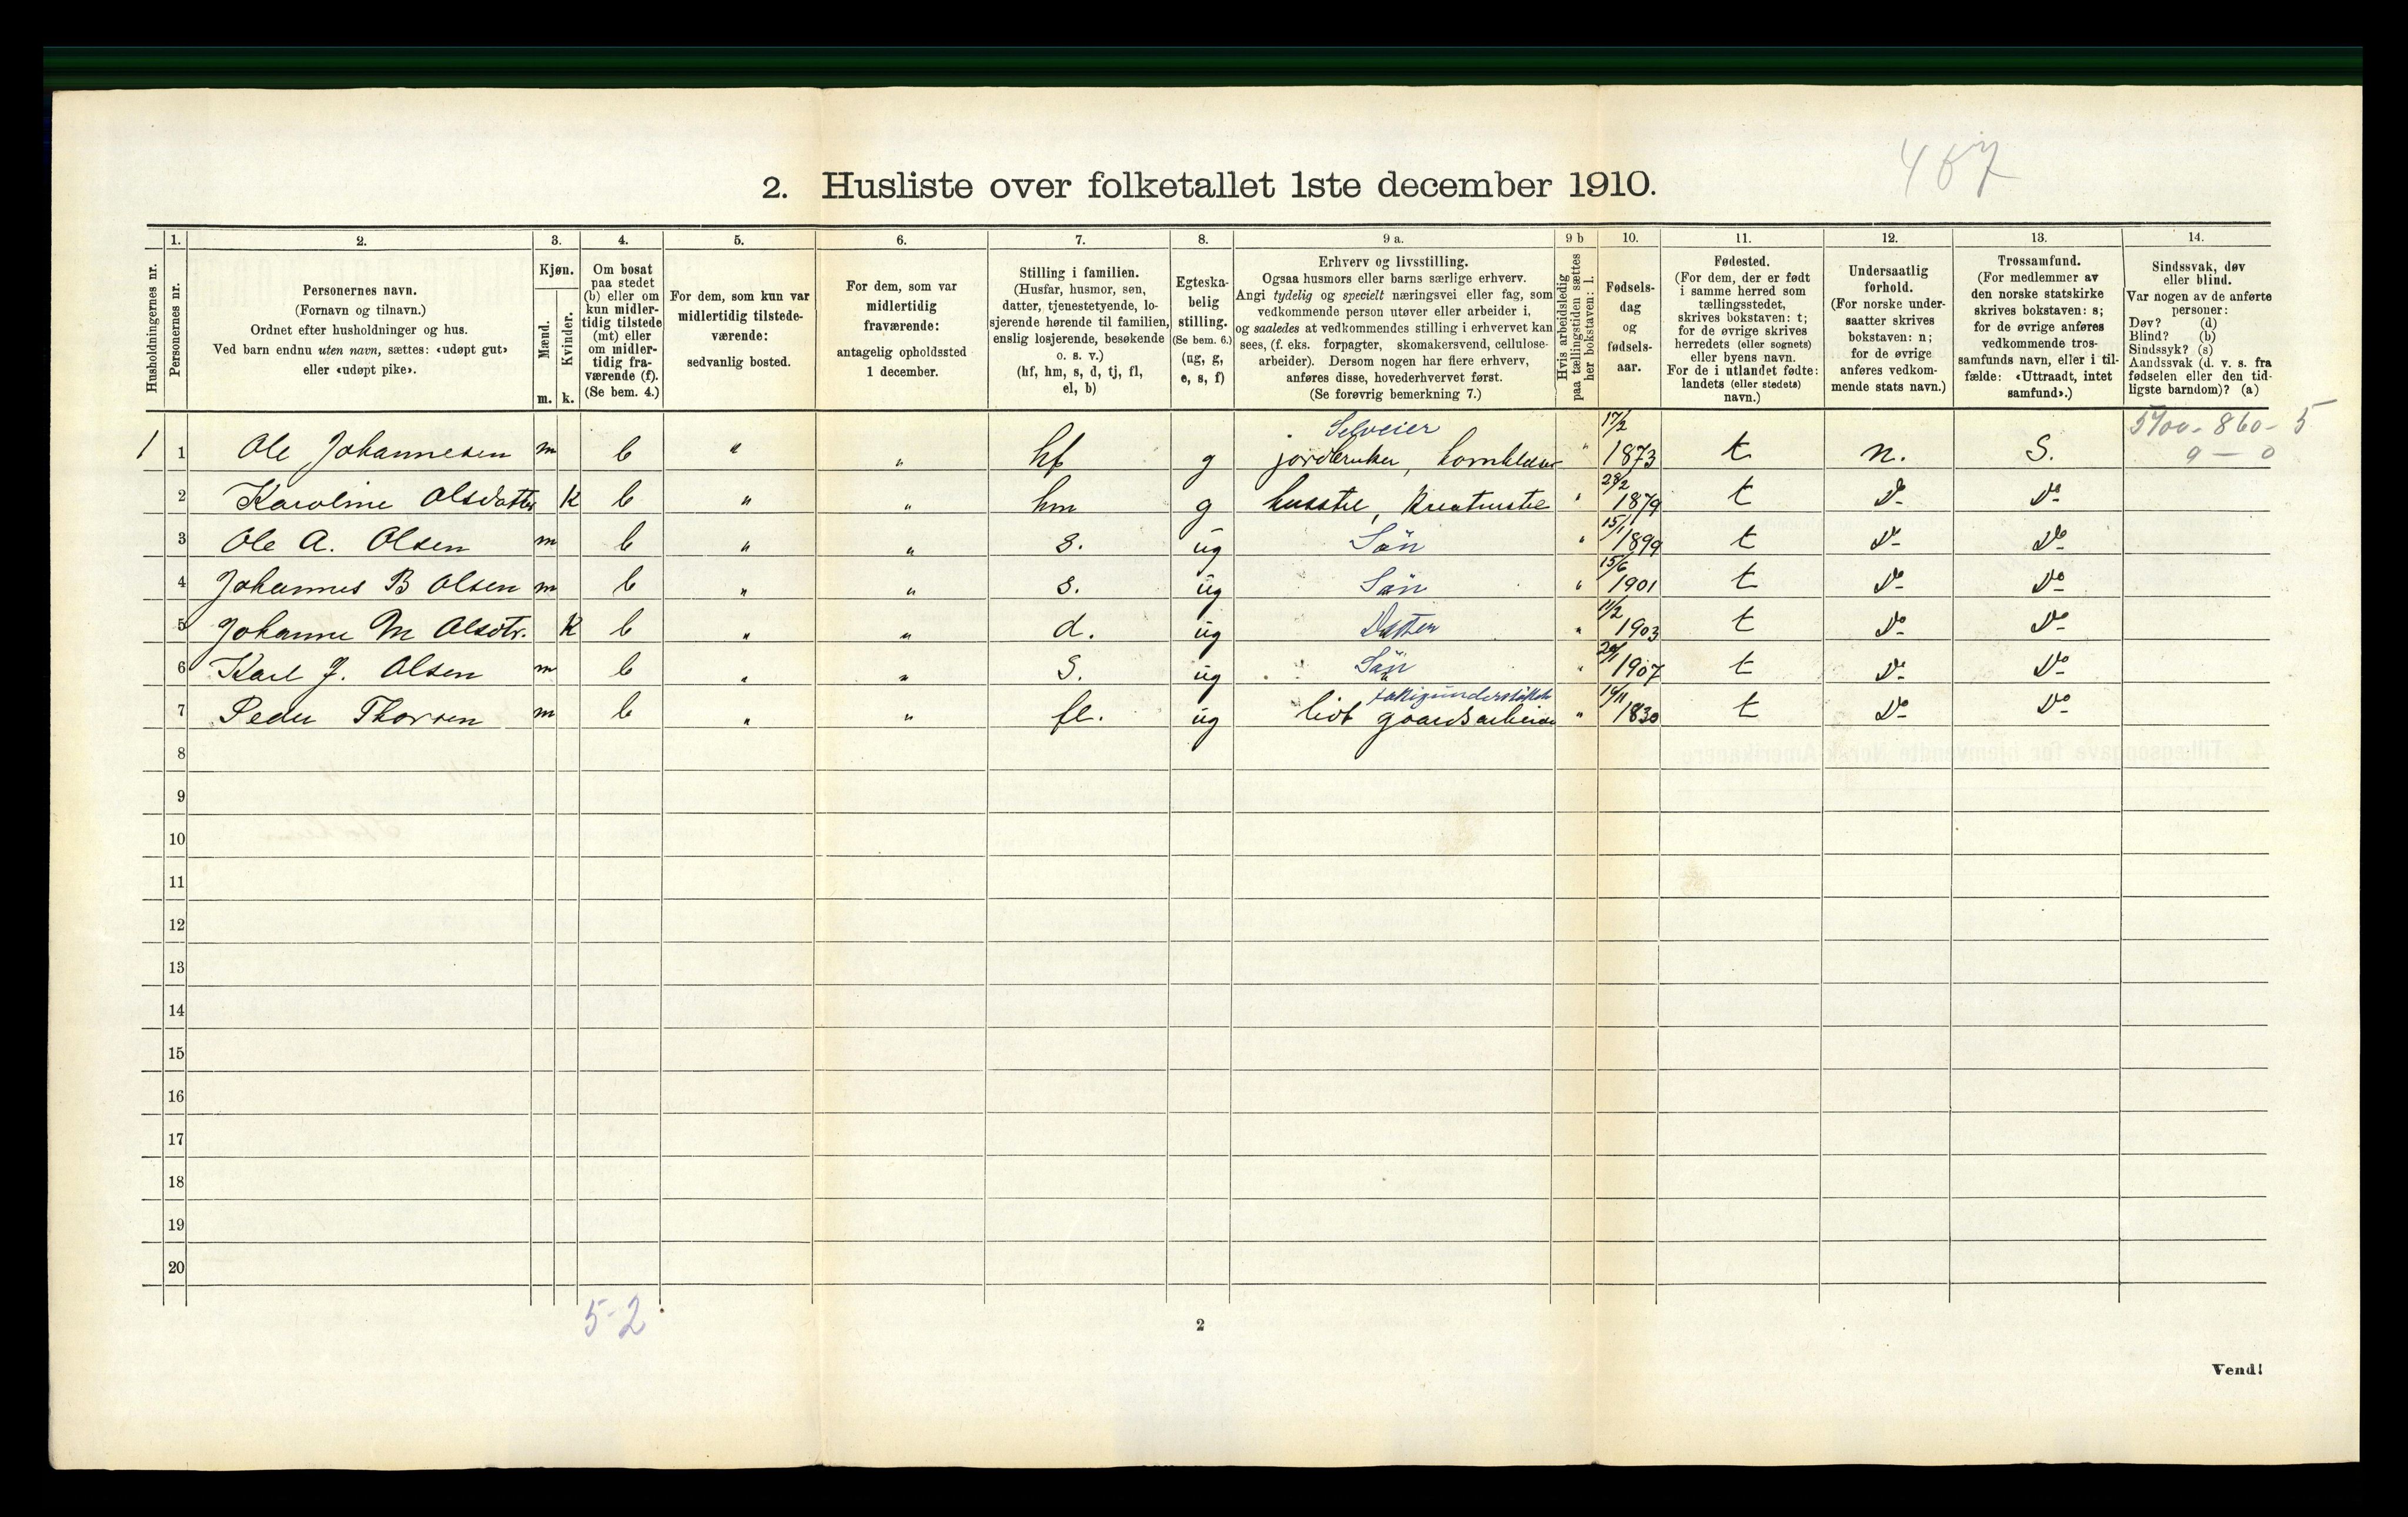 467
2. Husliste over folketallet 1ste december 1910.
Husholdningernes nr.
1.
Personernes nr.
2.
Personernes navn.
(Fornavn og tilnavn.)
Ordnet efter husholdninger og hus.
Ved barn endnu uten navn, sættes: «udøpt gut»
eller «udøpt pike».
3.
Kjøn.
Mænd.
Kvinder.
m. k.
4.
Om bosat
paa stedet
(b) eller om
kun midler-
tidig tilstede
(mt) eller
om midler-
tidig fra-
værende (f).
(Se bem. 4.)
5.
For dem, som kun var
midlertidig tilstede-
værende:
sedvanlig bosted.
6.
For dem, som var
midlertidig
fraværende:
antagelig opholdssted
1 december.
7.
Stilling i familien.
(Husfar, husmor, søn,
datter, tjenestetyende, lo-
sjerende hørende til familien,
enslig losjerende, besøkende
o. s. v.)
(hf, hm, s, d, tj, fl,
el, b)
8.
Egteska-
belig
stilling.
(Se bem. 6.)
(ug, g,
e, s, f)
9 a.
Erhverv og livsstilling.
Ogsaa husmors eller barns særlige erhverv.
Angi tydelig og specielt næringsvei eller fag, som
vedkommende person utøver eller arbeider i,
og saaledes at vedkommendes stilling i erhvervet kan
sees, (f. eks. forpagter, skomakersvend, cellulose-
arbeider). Dersom nogen har flere erhverv,
anføres disse, hovederhvervet først.
(Se forøvrig bemerkning 7.)
9 b
Hvis arbeidsledig
paa tællingstiden sættes
her bokstaven: l.
10.
Fødsels-
dag
og
fødsels-
aar.
11.
Fødested.
(For dem, der er født
i samme herred som
tællingsstedet,
skrives bokstaven: t;
for de øvrige skrives
herredets (eller sognets)
eller byens navn.
For de i utlandet fødte:
landets (eller stedets)
navn.)
12.
Undersaatlig
forhold.
(For norske under-
saatter skrives
bokstaven: n;
for de øvrige
anføres vedkom-
mende stats navn.)
13.
Trossamfund.
(For medlemmer av
den norske statskirke
skrives bokstaven: s;
for de øvrige anføres
vedkommende tros-
samfunds navn, eller i til-
fælde: «Uttraadt, intet
samfund».)
14.
Sindssvak, døv
eller blind.
Var nogen av de anførte
personer:
Døv? (d)
Blind? (b)
Sindssyk? (s)
Aandssvak (d. v. s. fra
fødselen eller den tid-
ligste barndom)? (a)
Selveier 17/2 5700- 860- 5
1 1 Ole Johannesen m b " " hf g jordbruker, " 1873 t n. S. 9 — 0
28/2
2 Karoline Olsdatter K b " " hm g husstel, kreaturstel " 1879 t Do Do
15/1
3 Ole A. Olsen m b " " s. ug Sön " 1899 t Do Do
15/6
4 Johannes B Olsen m b " " s. ug Sön " 1901 t Do Do
11/2
5 Johanne M Olsdtr. K b " " d. ug Datter " 1903 t Do Do
6 Karl J. Olsen m b " " S. ug Sön " 1907 t Do Do
fattigunderstöttet 14/11
7 Peder Thorsen m b " " fl. ug lidt gaardsarbeide " 1830 t Do Do
8
9
10
11
12
13
14
15
16
17
18
19
20
5-2
2
Vend!